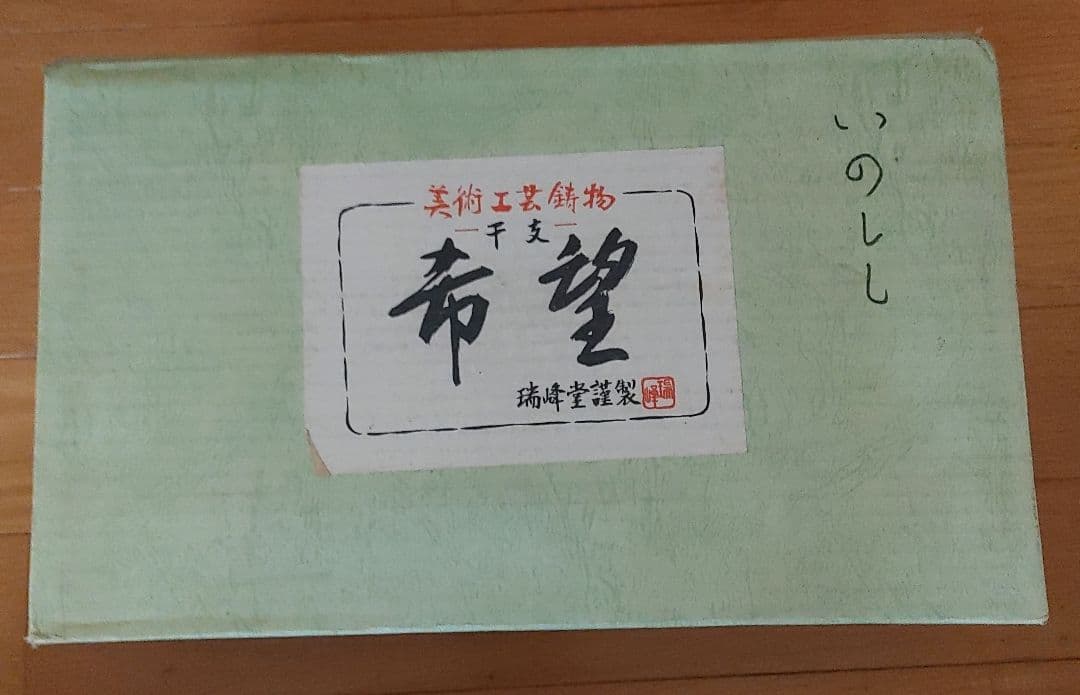 美術工芸鋳物
干支
希望
瑞峰堂謹製
瑞峰
いのしし